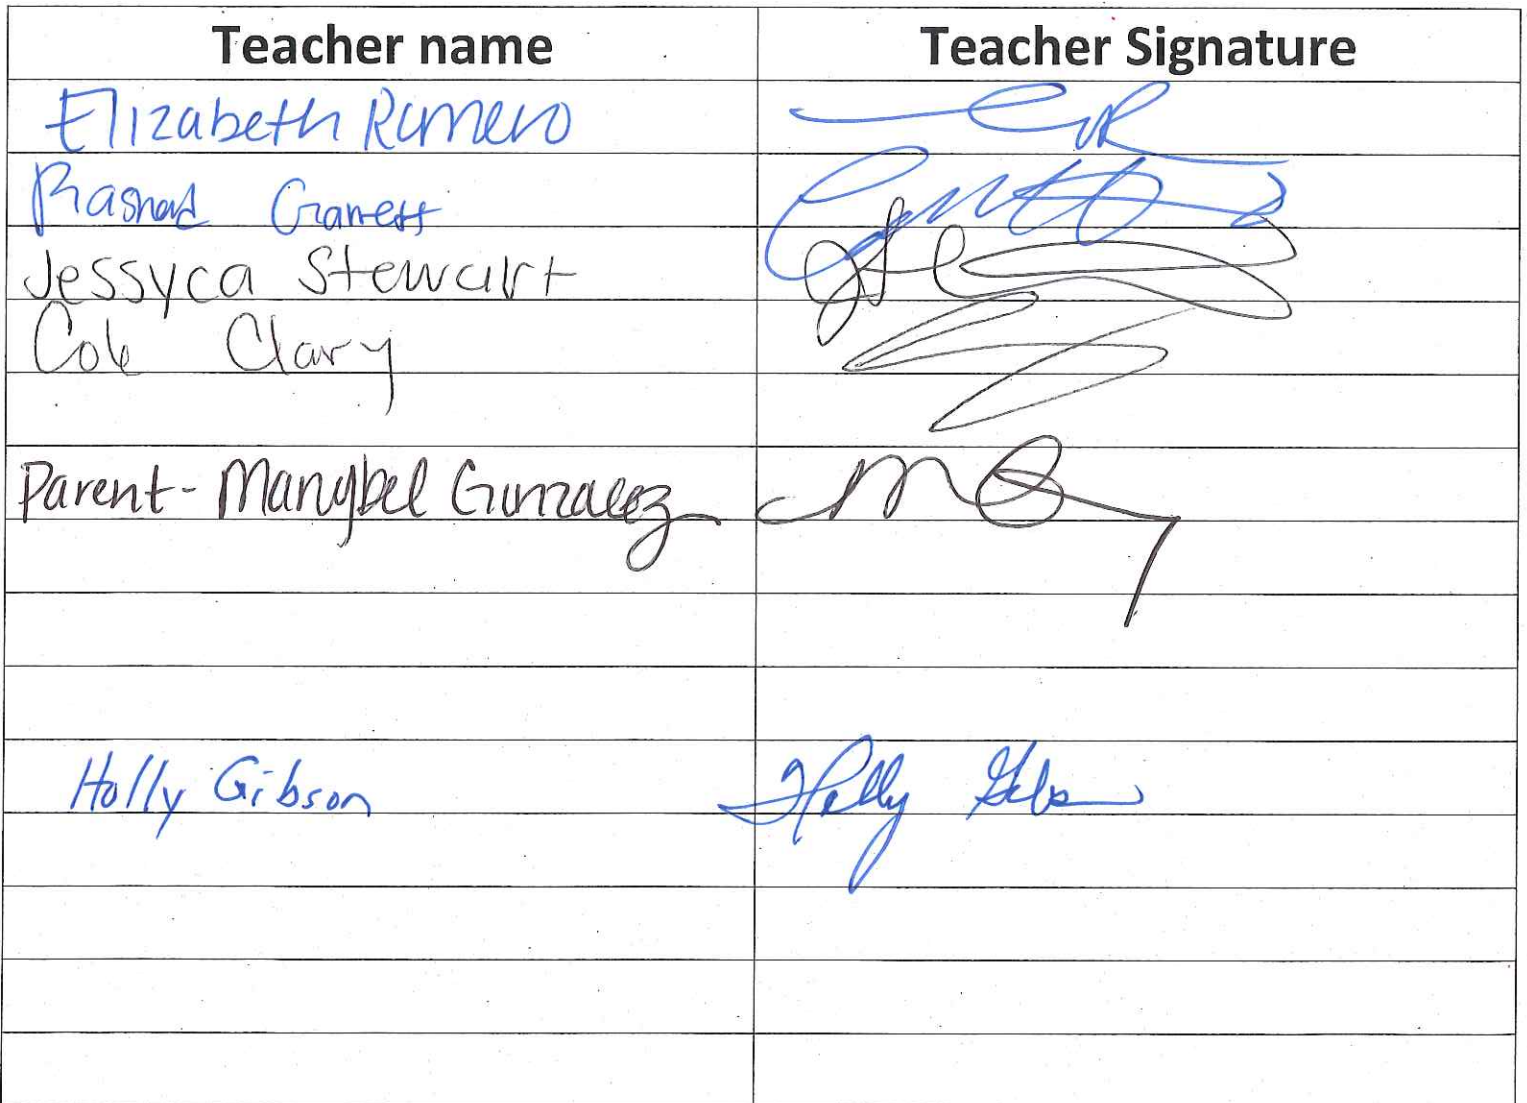 Teacher name Teacher Signature
Elizabeth Romero
Rashad Garrett
Jessyca Stewart
Cole Clary
Parent - Marybel Gonzalez
Holly Gibson Holly Gibson